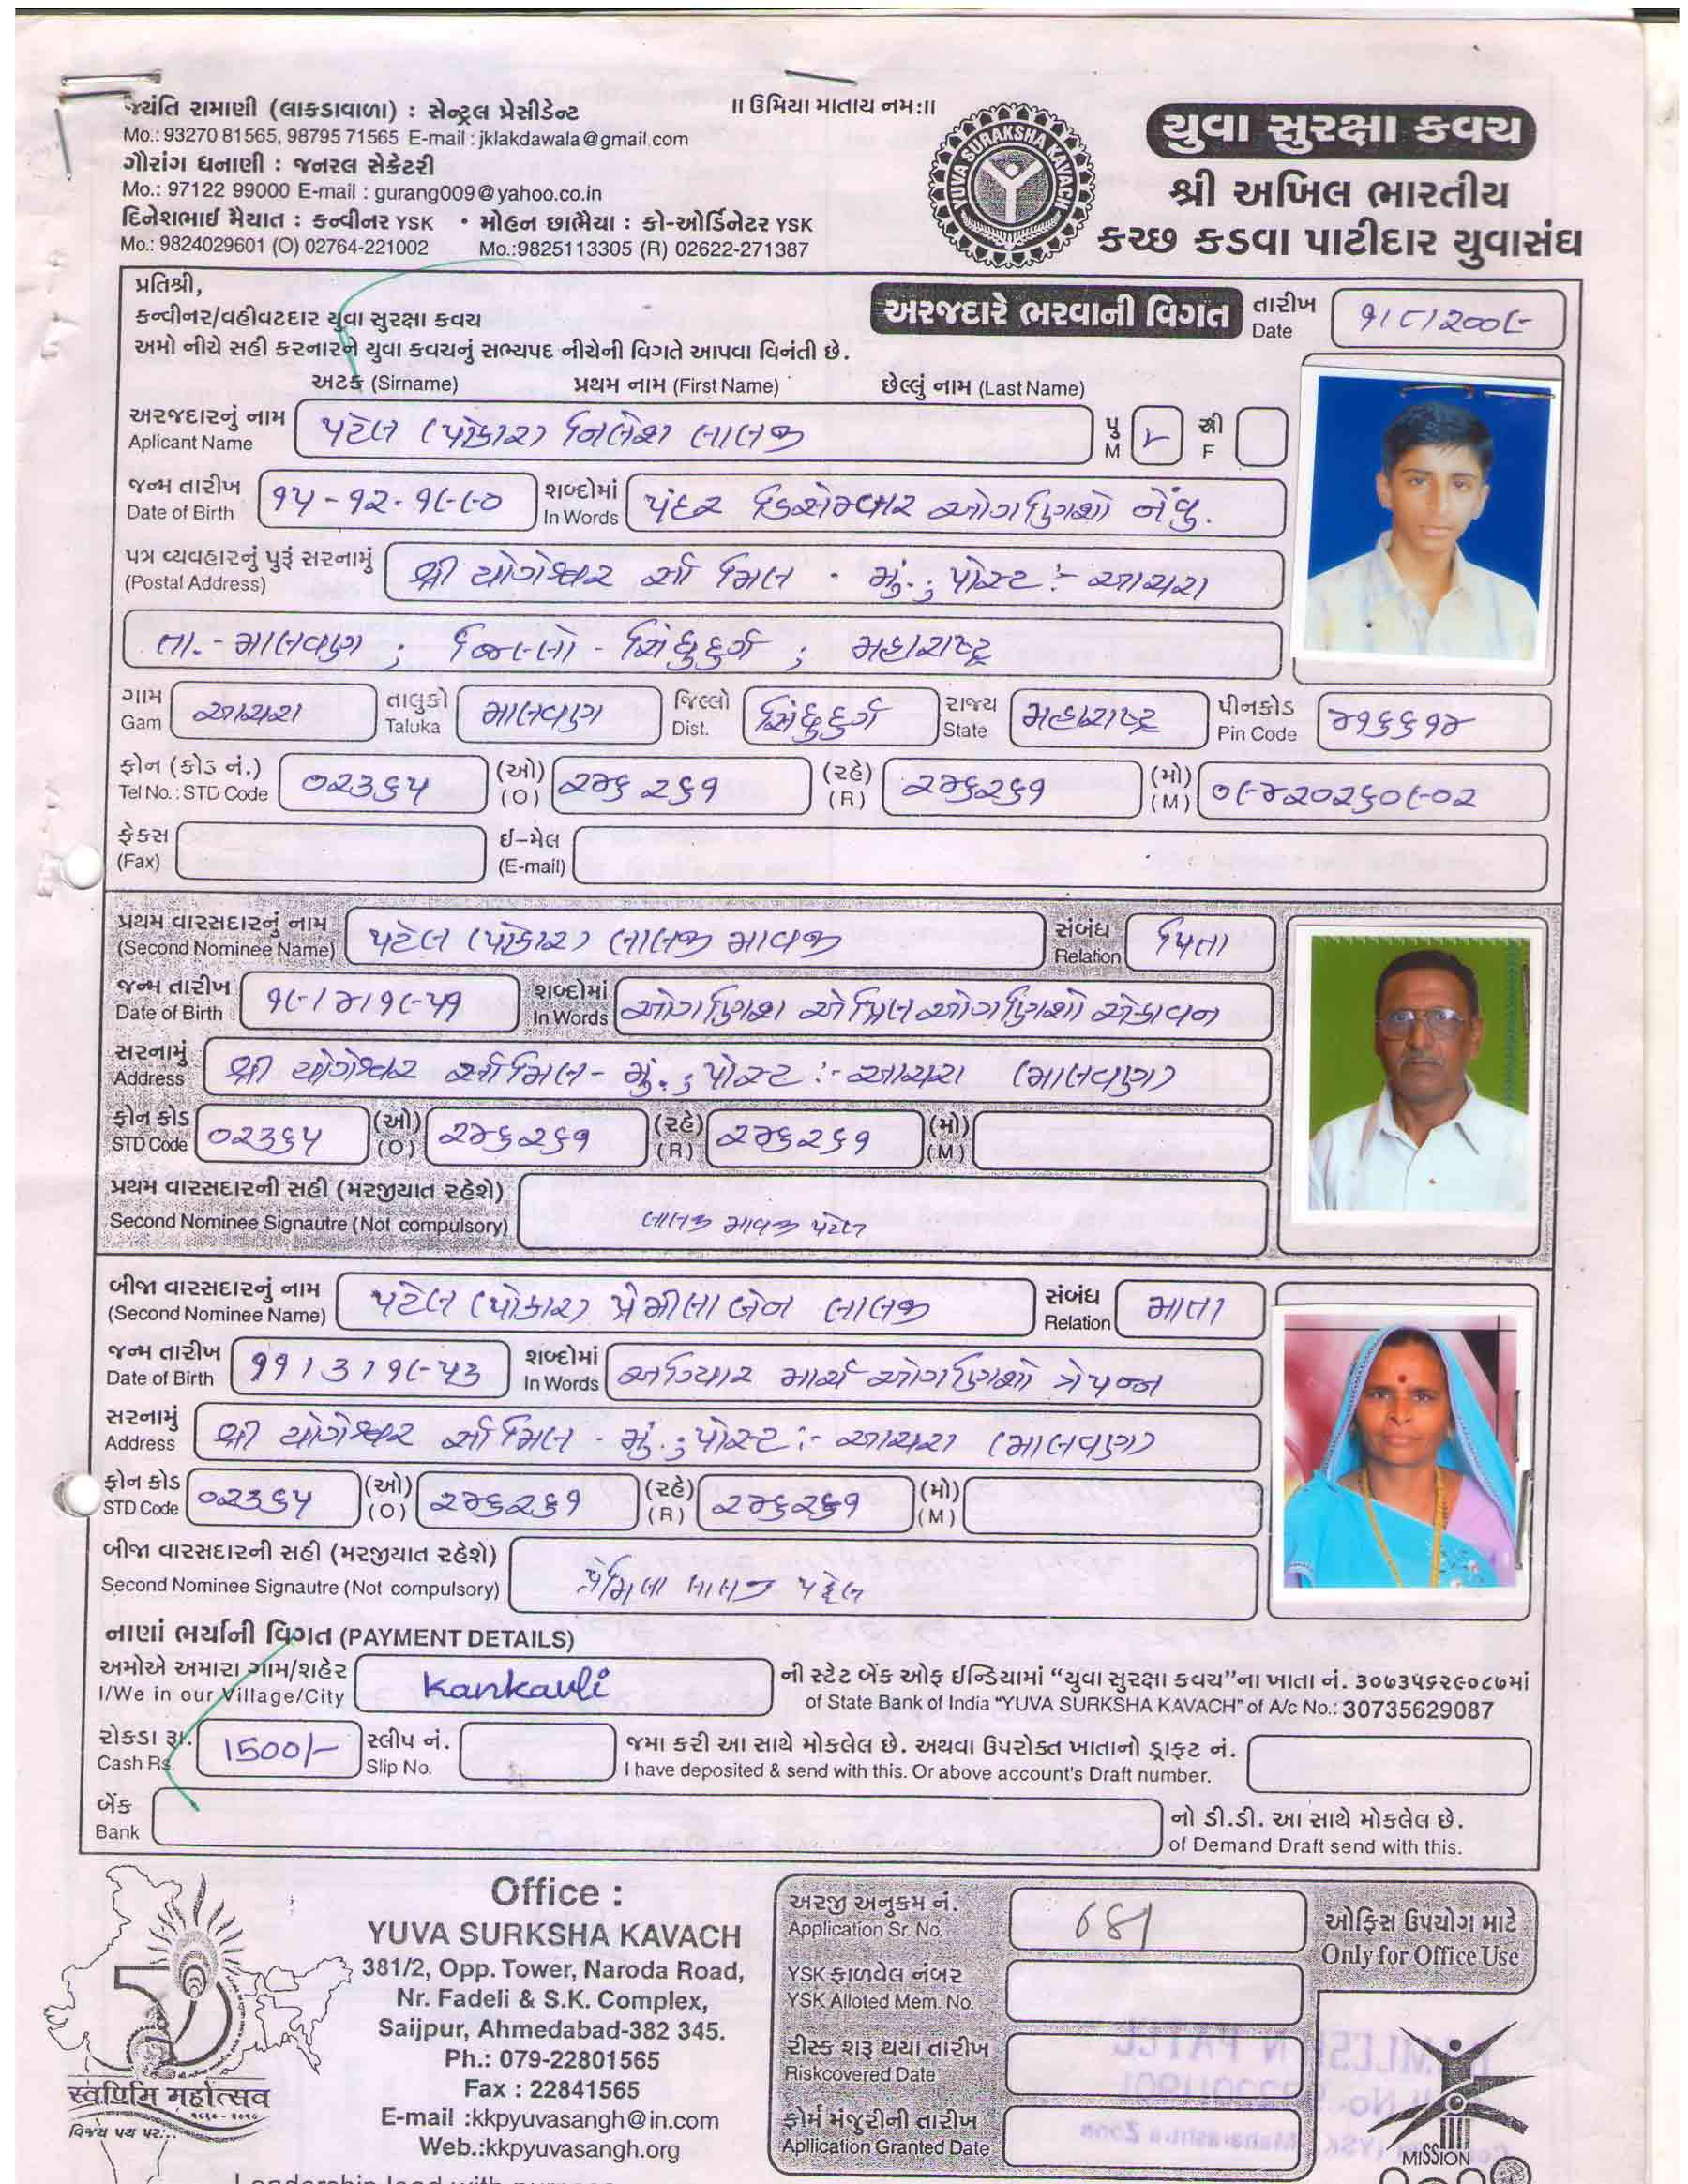 જયંતિ રામાણી (લાકડાવાળા) : સેન્ટ્રલ પ્રેસીડેન્ટ
Mo.: 93270 81565, 98795 71565 E-mail : jklakdawala@gmail.com
ગૌરાંગ ધનાણી : જનરલ સેક્રેટરી
Mo.: 97122 99000 E-mail : gurang009@yahoo.co.in
દિનેશભાઈ મૈયાત : કન્વીનર YSK • મોહન છાભૈયા : કો-ઓર્ડિનેટર YSK
Mo.: 9824029601 (O) 02764-221002 Mo.:9825113305 (R) 02622-271387
॥ ઉમિયા માતાય નમ:॥
YUVA SURAKSHA KAVACH
યુવા સુરક્ષા કવચ
શ્રી અખિલ ભારતીય
કચ્છ કડવા પાટીદાર યુવાસંઘ
પ્રતિશ્રી,
કન્વીનર/વહીવટદાર યુવા સુરક્ષા કવચ
અમો નીચે સહી કરનારને યુવા કવચનું સભ્યપદ નીચેની વિગતે આપવા વિનંતી છે.
અરજદારે ભરવાની વિગત
તારીખ Date ૧/૮/૨૦૦૯
અટક (Sirname) પ્રથમ નામ (First Name) છેલ્લું નામ (Last Name)
અરજદારનું નામ Aplicant Name પટેલ (પોકાર) નિલેશ લાલજી પુ M સ્ત્રી F
જન્મ તારીખ Date of Birth ૧૫-૧૨-૧૯૯૦ શબ્દોમાં In Words પંદર ડિસેમ્બાર ઓગણિશો નેંવુ.
પત્ર વ્યવહારનું પુરૂં સરનામું (Postal Address) શ્રી યોગેશ્વર સૉ મિલ . મું.; પોસ્ટ :- આચરા
તા.- માલવણ ; જિલ્લો - સિંધુદુર્ગ ; મહારાષ્ટ્ર
ગામ Gam આચરા તાલુકો Taluka માલવણ જિલ્લો Dist. સિંધુદુર્ગ રાજ્ય State મહારાષ્ટ્ર પીનકોડ Pin Code ૪૧૬૬૧૪
ફોન (કોડ નં.) Tel No.: STD Code ૦૨૩૬૫ (ઓ) (O) ૨૪૬૨૬૧ (રહે) (R) ૨૪૬૨૬૧ (મો) (M) ૦૯૪૨૦૨૬૦૯૦૨
ફેક્સ (Fax) ઈ-મેલ (E-mail)
પ્રથમ વારસદારનું નામ (Second Nominee Name) પટેલ (પોકાર) લાલજી માવજી સંબંધ Relation પિતા
જન્મ તારીખ Date of Birth ૧૯/૪/૧૯૫૧ શબ્દોમાં In Words ઓગણિશ એપ્રિલ ઓગણિશો એકાવન
સરનામું Address શ્રી યોગેશ્વર સૉ મિલ- મું.; પોસ્ટ :- આચરા (માલવણ)
ફોન કોડ STD Code ૦૨૩૬૫ (ઓ) (O) ૨૪૬૨૬૧ (રહે) (R) ૨૪૬૨૬૧ (મો) (M)
પ્રથમ વારસદારની સહી (મરજીયાત રહેશે)
Second Nominee Signautre (Not compulsory) લાલજી માવજી પટેલ
બીજા વારસદારનું નામ (Second Nominee Name) પટેલ (પોકાર) પ્રેમીલા બેન લાલજી સંબંધ Relation માતા
જન્મ તારીખ Date of Birth ૧૧/૩/૧૯૫૩ શબ્દોમાં In Words અગિયાર માર્ચ ઓગણિશો ત્રેપન્ન
સરનામું Address શ્રી યોગેશ્વર સૉ મિલ - મું.; પોસ્ટ :- આચરા (માલવણ)
ફોન કોડ STD Code ૦૨૩૬૫ (ઓ) (O) ૨૪૬૨૬૧ (રહે) (R) ૨૪૬૨૬૧ (મો) (M)
બીજા વારસદારની સહી (મરજીયાત રહેશે)
Second Nominee Signautre (Not compulsory) પ્રેમિલા લાલજી પટેલ
નાણાં ભર્યાની વિગત (PAYMENT DETAILS)
અમોએ અમારા ગામ/શહેર I/We in our Village/City Kankavli ની સ્ટેટ બેંક ઓફ ઈન્ડિયામાં “યુવા સુરક્ષા કવચ”ના ખાતા નં. ૩૦૭૩૫૬૨૯૦૮૭માં
of State Bank of India “YUVA SURKSHA KAVACH” of A/c No.: 30735629087
રોકડા રૂા. Cash Rs. 1500/- સ્લીપ નં. Slip No. જમા કરી આ સાથે મોકલેલ છે. અથવા ઉપરોક્ત ખાતાનો ડ્રાફ્ટ નં.
I have deposited & send with this. Or above account's Draft number.
બેંક Bank નો ડી.ડી. આ સાથે મોકલેલ છે.
of Demand Draft send with this.
સ્વર્ણિમ મહોત્સવ
૧૯૬૦ - ૨૦૧૦
વિજય પથ પર...
Office :
YUVA SURKSHA KAVACH
381/2, Opp. Tower, Naroda Road,
Nr. Fadeli & S.K. Complex,
Saijpur, Ahmedabad-382 345.
Ph.: 079-22801565
Fax : 22841565
E-mail :kkpyuvasangh@in.com
Web.:kkpyuvasangh.org
અરજી અનુક્રમ નં. Application Sr. No. 681
YSK ફાળવેલ નંબર YSK Alloted Mem. No.
રીસ્ક શરૂ થયા તારીખ Riskcovered Date
ફોર્મ મંજુરીની તારીખ Apllication Granted Date
ઓફિસ ઉપયોગ માટે
Only for Office Use
MISSION